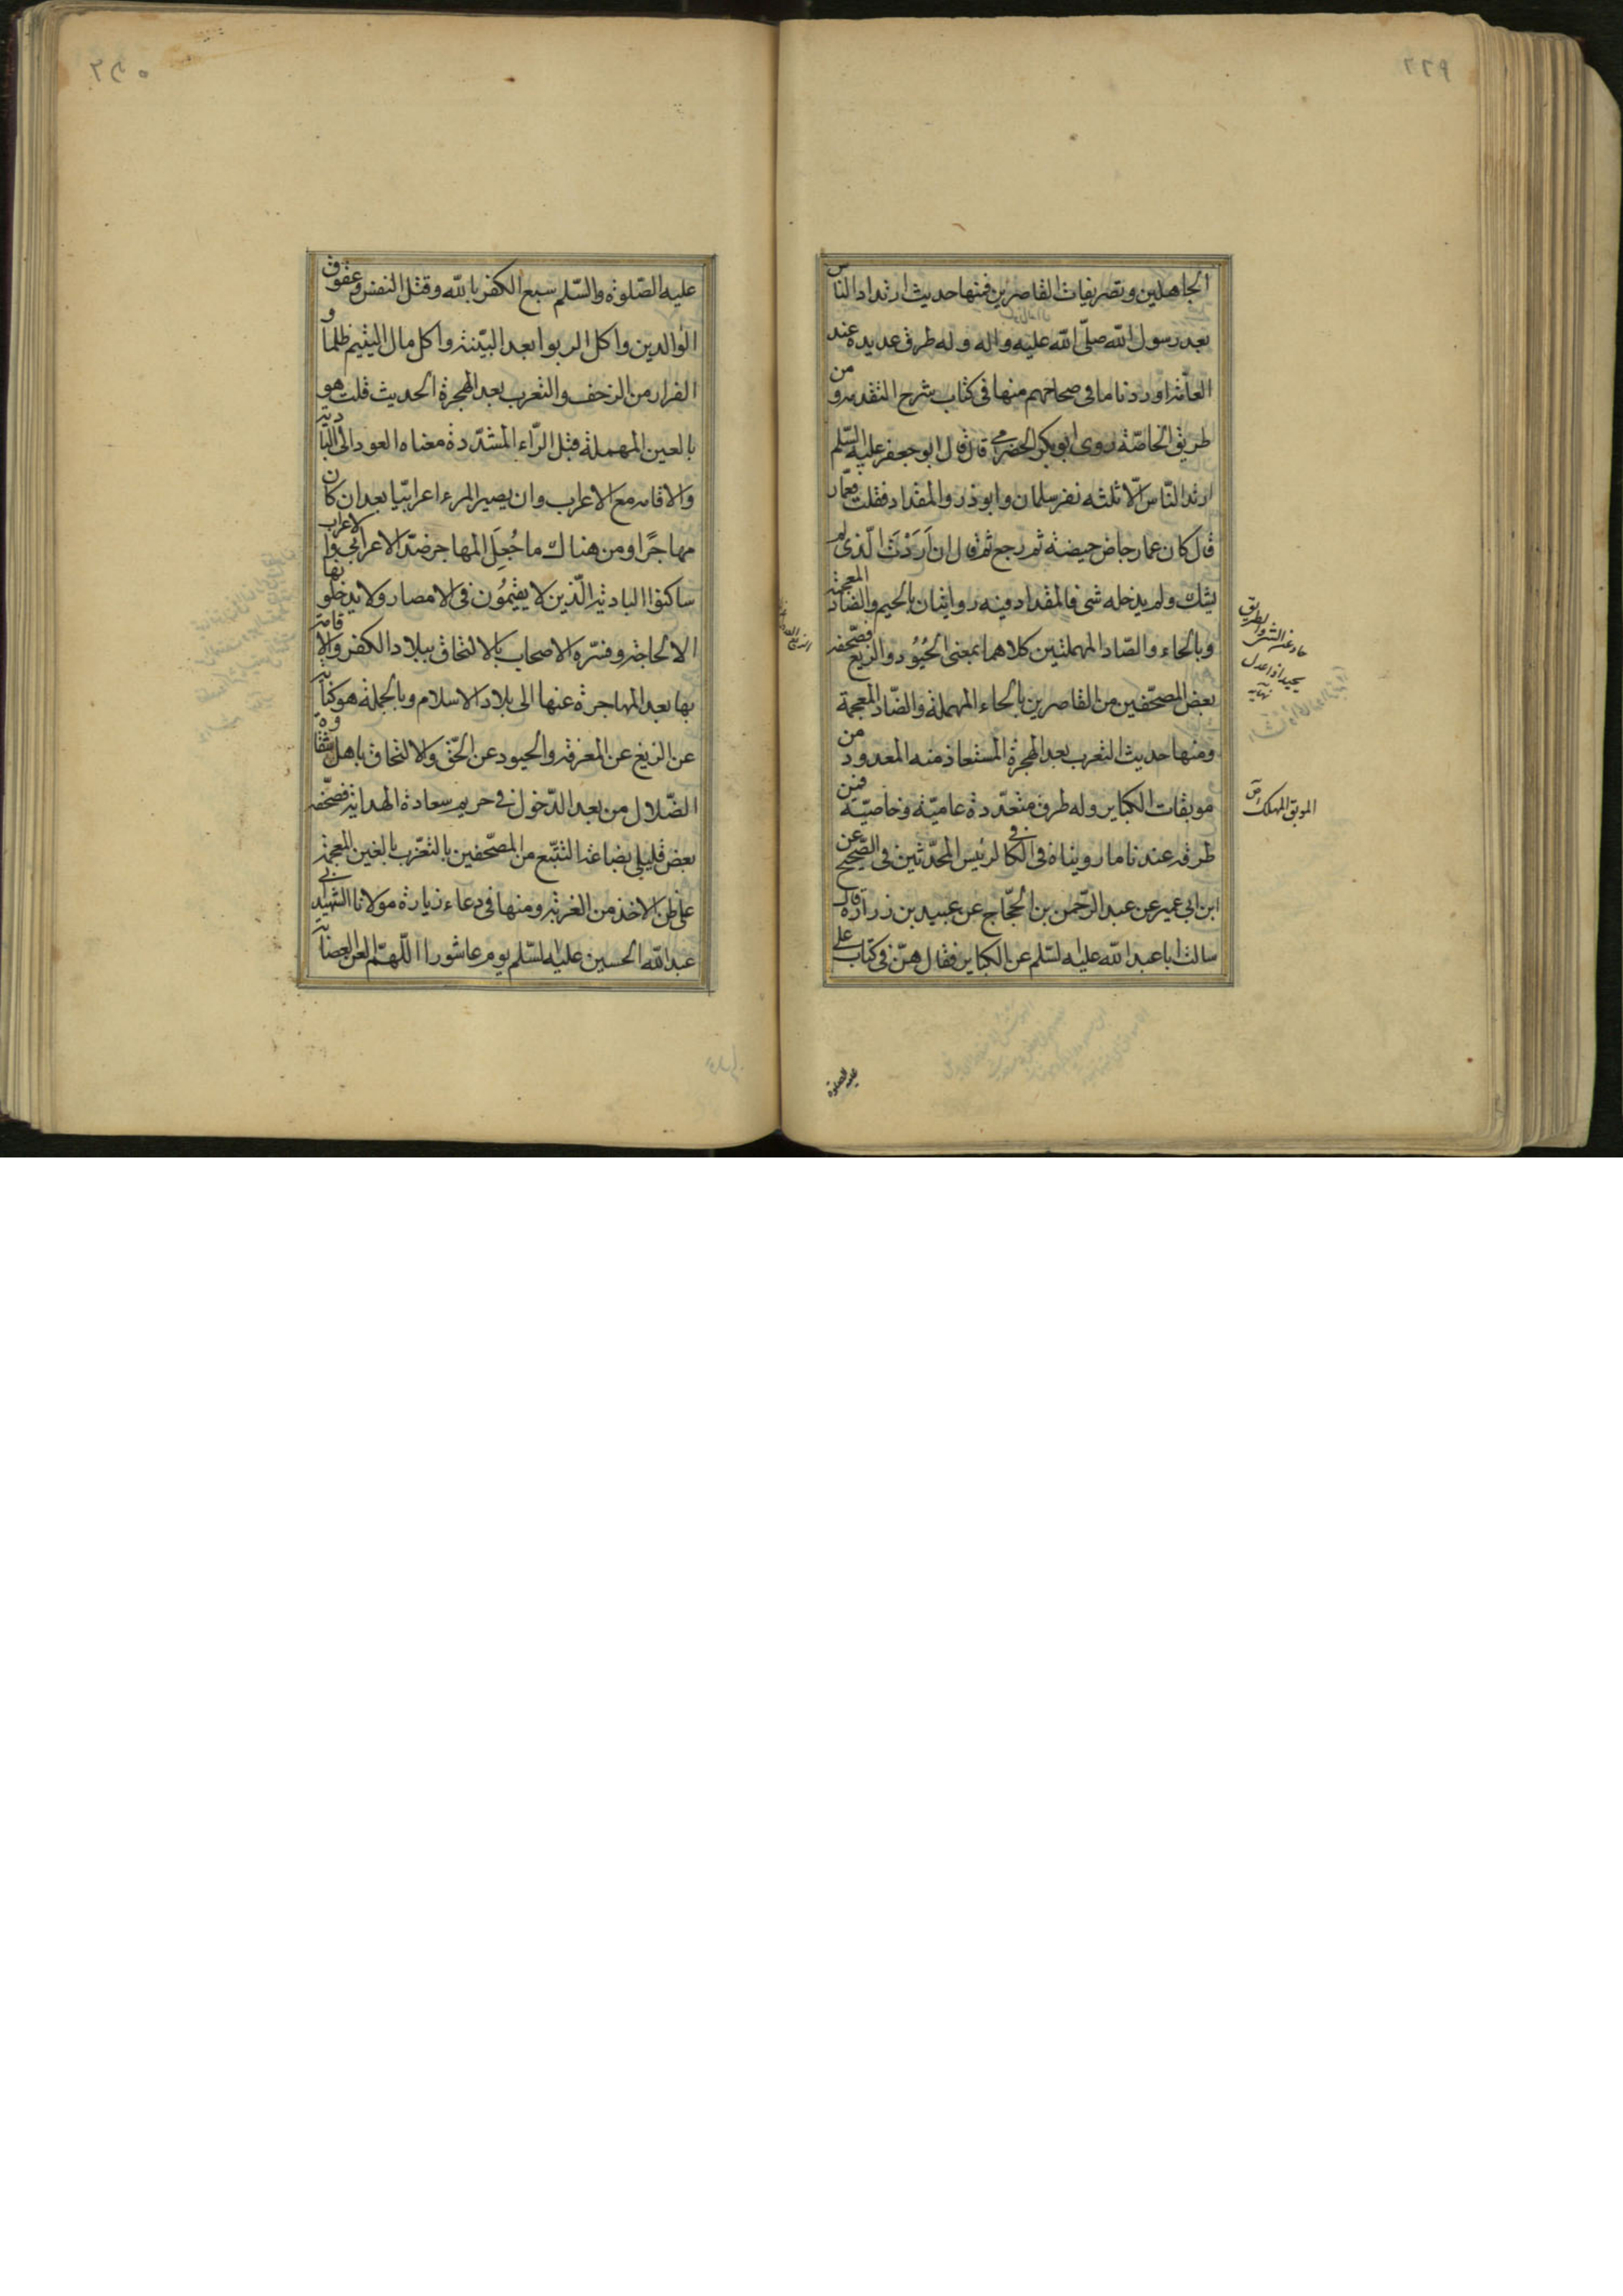 الجاهلين وتصريفات القاصرين فمنها حديث ارتداد الناس
بعد رسول الله صلّى الله عليه واله وله طرق عديدة عند
العامّة اوردنا ما فى صحاحهم منها فى كتاب شرح التقدمة ومن
طريق الخاصّة روى ابو بكر الحضرمى قال قال ابو جعفر عليه السّلم
ارتد النّاس الّا ثلثه نفر سلمان وابوذر والمقداد فقلت فعمّار
قال كان عمار جاض جيضة ثم رجع ثم قال ان اَرَدْتَ الّذى لم
يشك ولم يدخله شى فالمقداد فيه روايتان بالجيم والضاد المعجمة
وبالحاء والصّاد المهملتين كلاهما بمعنى الحُيُود والزيغ فصحّفه
بعض المصحّفين من القاصرين بالحاء المهملة والضّاد المعجمة
ومنها حديث التعرب بعد الهجرة المستعاذ منه المعدود من
موبقات الكباير وله طرق متعدّدة عاميّة وخاصّيّة فمن
طرقه عندنا ما رويناه فى الكافى لرئيس المحدّثين فى الصّحيح عن
ابن ابى عمير عن عبد الرّحمن بن الحجّاج عن عبيد بن زرارة قال
سالت ابا عبد الله عليه لسّلم عن الكباير فقال هنّ فى كتاب على
حاد عن الشئ والطريق
يحيد اذا عدل
نهايه
الموبق المهلك ص
عليه الصلوة
عليه الصّلوة والسّلم سبع الكفر بالله وقتل النفس وعقوق
الوالدين واكل الربوا بعد البيّنة واكل مال اليتيم ظلما و
الفرار من الزحف والتعرب بعد الهجرة الحديث قلت هو
بالعين المهملة قبل الرّاء المشدّدة معناه العود الى البادية
والاقامة مع الاعراب وان يصير المرء اعرابيّا بعد ان كان
مهاجرًا ومن هناك ما جُعِلَ المهاجر ضدّ الاعرابى والاعراب
ساكنوا البادية الّذين لا يقيمُون فى الامصار ولا يدخلونها
الا لحاجة وفسّره الاصحاب بالالتحاق ببلاد الكفر والاقامة
بها بعد المهاجرة عنها الى بلاد الاسلام وبالجملة هو كناية
عن الزيغ عن المعرفة والحيود عن الحّق والالتحاق باهل شقاوة
الضّلال من بعد الدّخول فى حريم سعادة الهداية فصحّفه
بعض قليلى بضاعة التتبّع من المصحّفين بالتغرّب بالغين المعجمة
على ظن الاخذ من الغربة ومنها فى دعاء زيارة مولانا الشهيد ابى
عبد الله الحسين عليه لسّلم يوم عاشورا اللّهمّ العن العصابة